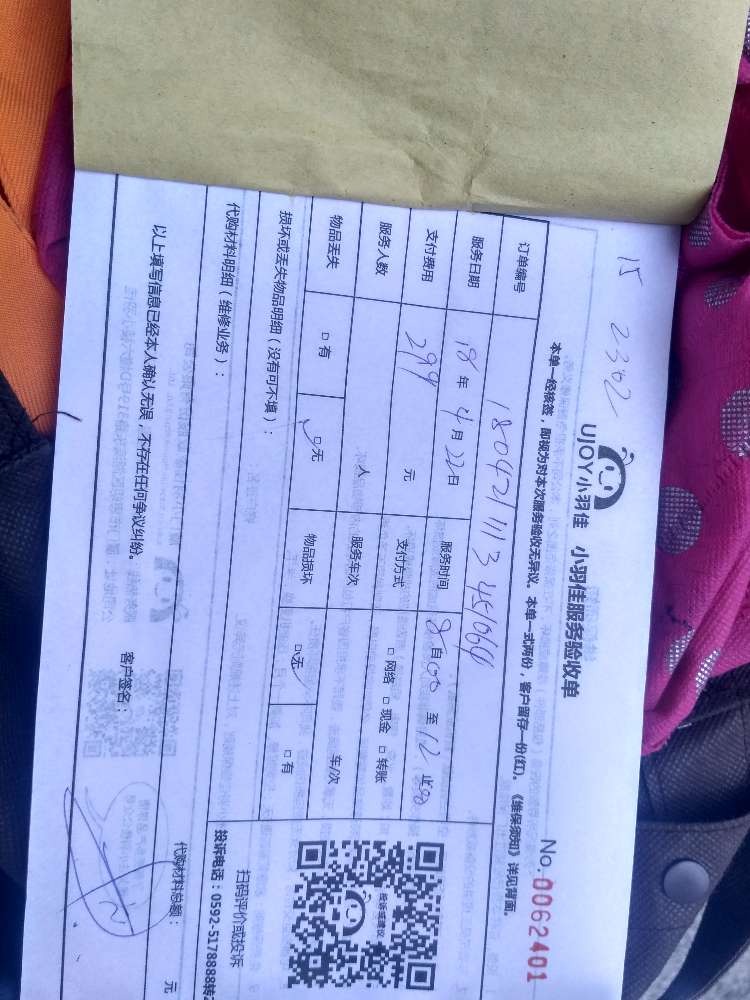 15 2302
UJOY小羽佳 小羽佳服务验收单
No.0062401
本单一经核签，即视为对本次服务验收无异议。本单一式两份，客户留存一份(红)。《维保须知》详见背面。
订单编号
服务日期 18年4月22日 服务时间 8自00至12止00
支付费用 299 元 支付方式 □网络 □现金 □转账
服务人数 人 服务车次 车/次
物品丢失 □有 □无 物品损坏 □无 □有
损坏或丢失物品明细（没有可不填）：
投诉或建议
扫码评价或投诉
投诉电话：0592-5178888转2
代购材料明细（维修业务）：
代购材料总额： 元
以上填写信息已经本人确认无误，不存在任何争议纠纷。 客户签名：